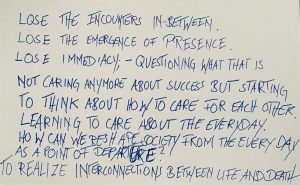 LOSE THE ENCOUNTERS IN-BETWEEN.
LOSE THE EMERGENCE OF PRESENCE.
LOSE IMMEDIACY. - QUESTIONING WHAT THAT IS
NOT CARING ANYMORE ABOUT SUCCESS BUT STARTING
TO THINK ABOUT HOW TO CARE FOR EACH OTHER.
LEARNING TO CARE ABOUT THE EVERYDAY.
HOW CAN WE SOCIETY FROM THE EVERY DAY
AS A POINT OF DEPARTURE?
TO REALIZE INTERCONNECTIONS BETWEEN LIFE AND DEATH